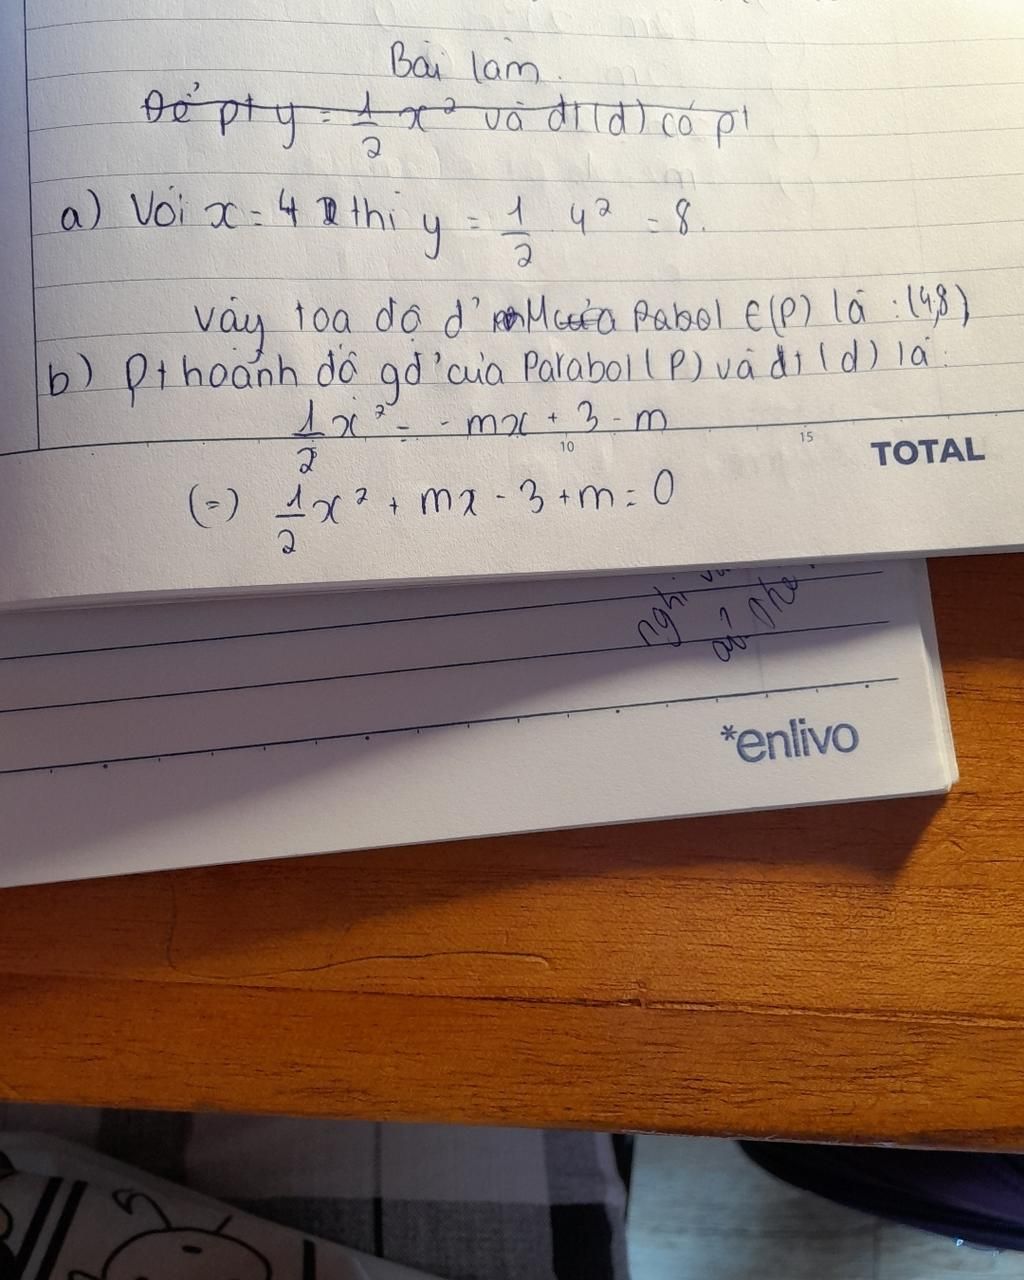 Bài làm.
Để pt y = 1/2 x² và đt (d) có pt
a) Với x = 4 thì y = 1/2 4² = 8.
vậy toạ độ đ' M Pabol ∈ (P) là : (4,8)
b) pt hoành độ gđ' của Parabol (P) và đt (d) là:
1/2 x² = - mx + 3 - m
10 15 TOTAL
(=) 1/2 x² + mx - 3 + m = 0
nghi
*enlivo